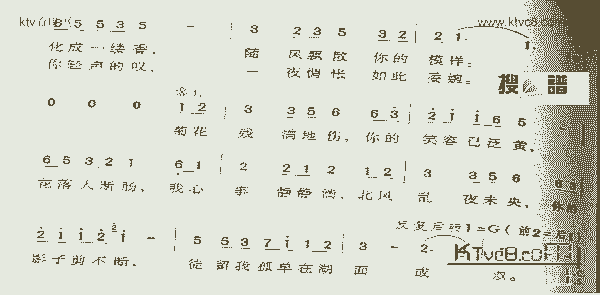 6 5 5 3 5 5 - | 3 2 3 5 3 2 | 2 1. 1.
www.ktvc8.com
化成一缕香， 随 风飘散 你的 模样。
你轻声的叹， 一 夜惆怅 如此 委婉。
搜 谱
0 0 0 1 2 | 3 3 5 6 6 3 | 2 1 1 6 5
菊花 残 满地伤，你的 笑容已泛黄，
6 5 3 2 1 6 1 | 2 2 1 2 1 2 | 3 3 5 6
花落人断肠，我心 事 静静淌，北风 乱 夜未央，
反复后转1=G（前2=后
2 1 1 2 1 - | 5 5 3 7 1 1 2 | 3 - 2
影子剪不断， 徒 留我孤单在湖 面 成 双。
KTvc8.com